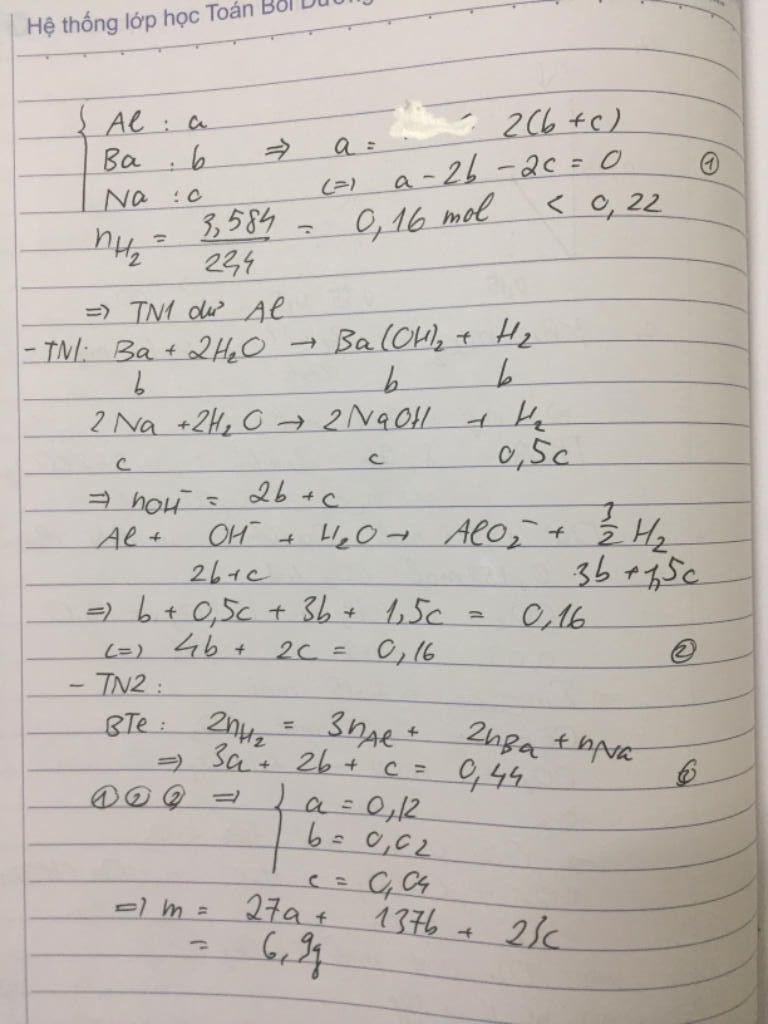 Hệ thống lớp học Toán Bồi Dưỡng
Al : a
Ba : b ⇒ a = 2(b + c)
Na : c (=) a - 2b - 2c = 0 ①
nH₂ = 3,584 / 22,4 = 0,16 mol < 0,22
⇒ TN1 dư Al
- TN1: Ba + 2H₂O → Ba(OH)₂ + H₂
b b b
2Na + 2H₂O → 2NaOH + H₂
c c 0,5c
⇒ nOH⁻ = 2b + c
Al + OH⁻ + H₂O → AlO₂⁻ + 3/2 H₂
2b+c 3b + 1,5c
⇒ b + 0,5c + 3b + 1,5c = 0,16
(=) 4b + 2c = 0,16 ②
- TN2 :
BTe : 2nH₂ = 3nAl + 2nBa + nNa
⇒ 3a + 2b + c = 0,44
① ② ⇒ a = 0,12
b = 0,02
c = 0,04
⇒ m = 27a + 137b + 23c
= 6,9g